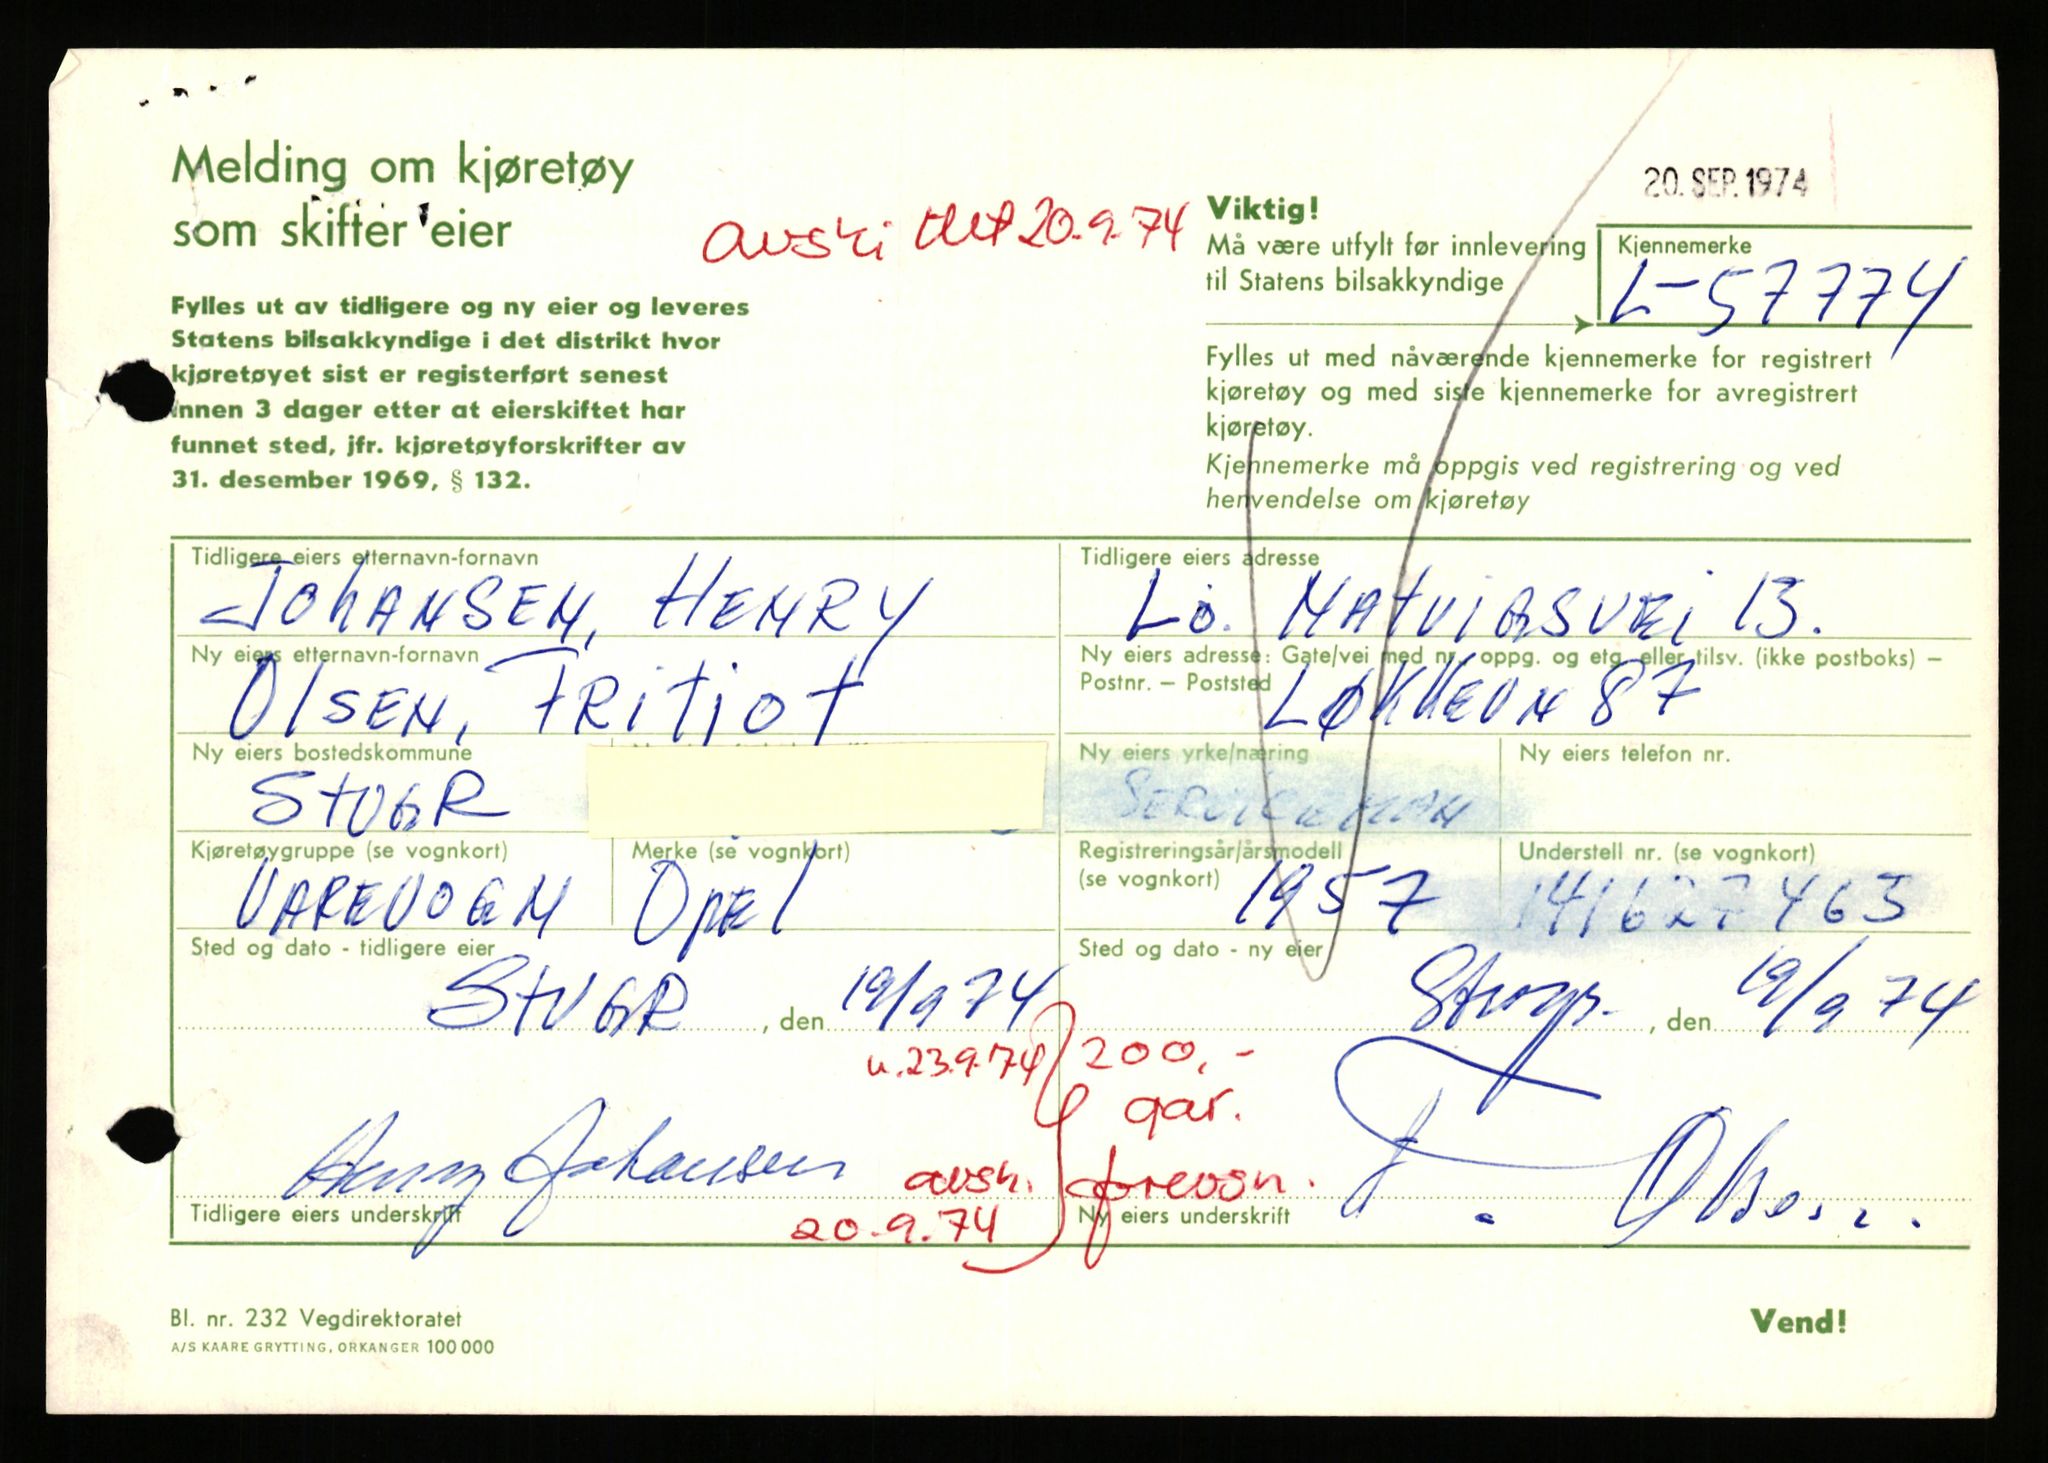 Melding om kjøretøy
som skifter eier
avski 20.9.74
20. SEP. 1974
Viktig!
Må være utfylt før innlevering
til Statens bilsakkyndige
Kjennemerke
L-57774
Fylles ut av tidligere og ny eier og leveres
Statens bilsakkyndige i det distrikt hvor
kjøretøyet sist er registerført senest
innen 3 dager etter at eierskiftet har
funnet sted, jfr. kjøretøyforskrifter av
31. desember 1969, § 132.
Fylles ut med nåværende kjennemerke for registrert
kjøretøy og med siste kjennemerke for avregistrert
kjøretøy.
Kjennemerke må oppgis ved registrering og ved
henvendelse om kjøretøy
Tidligere eiers etternavn-fornavn
JOHANSEN, HENRY
Tidligere eiers adresse
13.
Ny eiers etternavn-fornavn
OLSEN, FRITJOF
Ny eiers adresse: Gate/vei med nr., oppg. og etg. eller tilsv. (ikke postboks) –
Postnr. – Poststed
LØKKEVN 87
Ny eiers bostedskommune
STVGR
Ny eiers yrke/næring
SERVICEMAN
Ny eiers telefon nr.
Kjøretøygruppe (se vognkort)
VAREVOGN
Merke (se vognkort)
OPEL
Registreringsår/årsmodell
(se vognkort)
1957
Understell nr. (se vognkort)
141627463
Sted og dato - tidligere eier
STVGR, den 19/9 74
Sted og dato - ny eier
Stvgr., den 19/9 74
u. 23.9.74
200,-
gar.
Henry Johansen
avsk.
20.9.74
frevogn.
F. Olsen
Tidligere eiers underskrift
Ny eiers underskrift
Bl. nr. 232 Vegdirektoratet
A/S KAARE GRYTTING, ORKANGER 100 000
Vend!